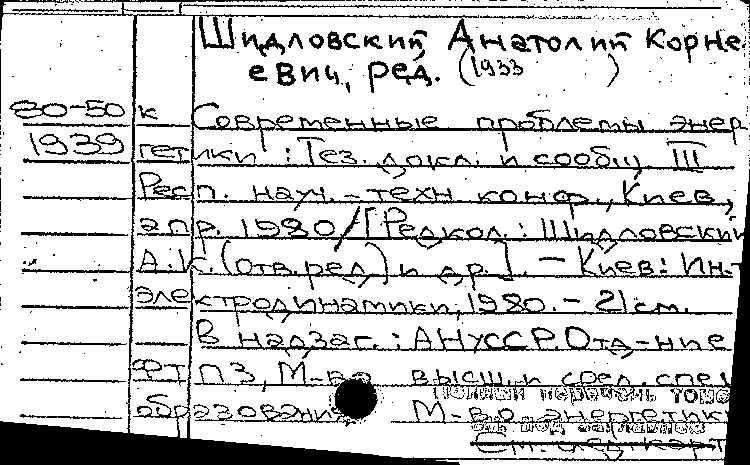 Шидловский Анатолий Корне
евич, ред. (1933 )
80-50 к Современные проблемы энер
1939 гетики : Тез. докл. и сообщ. III
Респ. науч.-техн. конф., Киев,
апр. 1980/[Редкол.: Шидловский
А.К. (отв. ред.) и др.]. — Киев: Ин-т
электродинамики, 1980. - 21 см.
В надзаг.: АН УССР. Отд-ние
ФТПЭ, М-во высш. и сред. спец
образования М-во энергетики
Полный перечень томов
см. под заглавием
См. след. карт